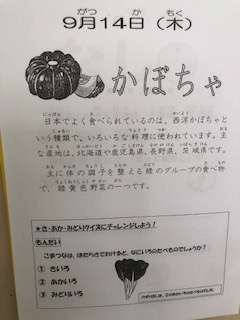 9月14日(木)
かぼちゃ
日本でよく食べられているのは、西洋かぼちゃと
いう種類で、いろいろな料理に使われています。主
な産地は、北海道や鹿児島県、長野県、茨城県です。
主に体の調子を整える緑のグループの食べ物
で、緑黄色野菜の一つです。
★き・あか・みどりクイズにチャレンジしよう!
もんだい
こまつなは、はたらきでわけると、なにいろのたべものでしょうか?
① きいろ
② あかいろ
③ みどりいろ